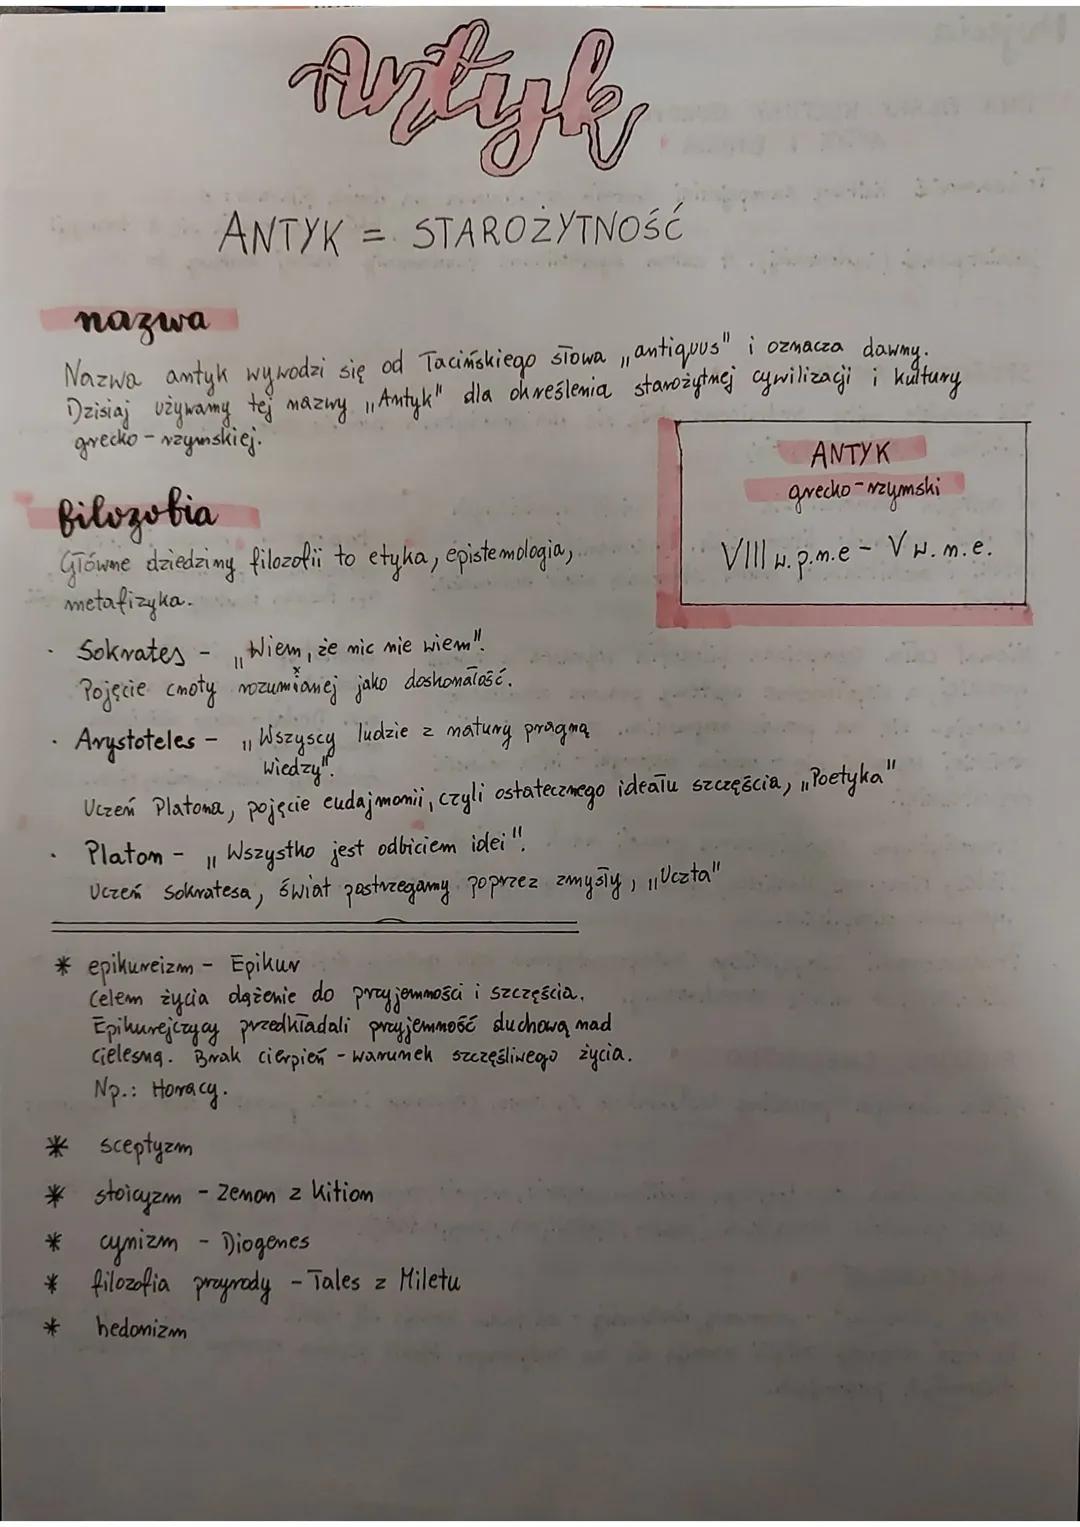 Antyk
ANTYK = STAROŻYTNOŚĆ
nazwa
Nazwa antyk wywodzi się od łacińskiego słowa „antiquus" i oznacza dawny.
Dzisiaj używamy tej nazwy „Antyk" dla określenia starożytnej cywilizacji i kultury
grecko-rzymskiej.
ANTYK
grecko-rzymski
VIII w. p.n.e - V w. n. e.
filozofia
Główne dziedziny filozofii to etyka, epistemologia,
metafizyka.
· Sokrates - „Wiem, że nic nie wiem".
Pojęcie cnoty rozumianej jako doskonałość.
· Arystoteles - „Wszyscy ludzie z natury pragną
wiedzy".
Uczeń Platona, pojęcie eudajmonii, czyli ostatecznego ideału szczęścia, „Poetyka"
· Platon - „Wszystko jest odbiciem idei".
Uczeń Sokratesa, świat postrzegamy poprzez zmysły, „Uczta"
* epikureizm - Epikur
Celem życia dążenie do przyjemności i szczęścia.
Epikurejczycy przedkładali przyjemność duchową nad
cielesną. Brak cierpień - warunek szczęśliwego życia.
Np.: Horacy.
* sceptyzm
* stoicyzm - Zenon z Kition
* cynizm - Diogenes
* filozofia przyrody - Tales z Miletu
* hedonizm